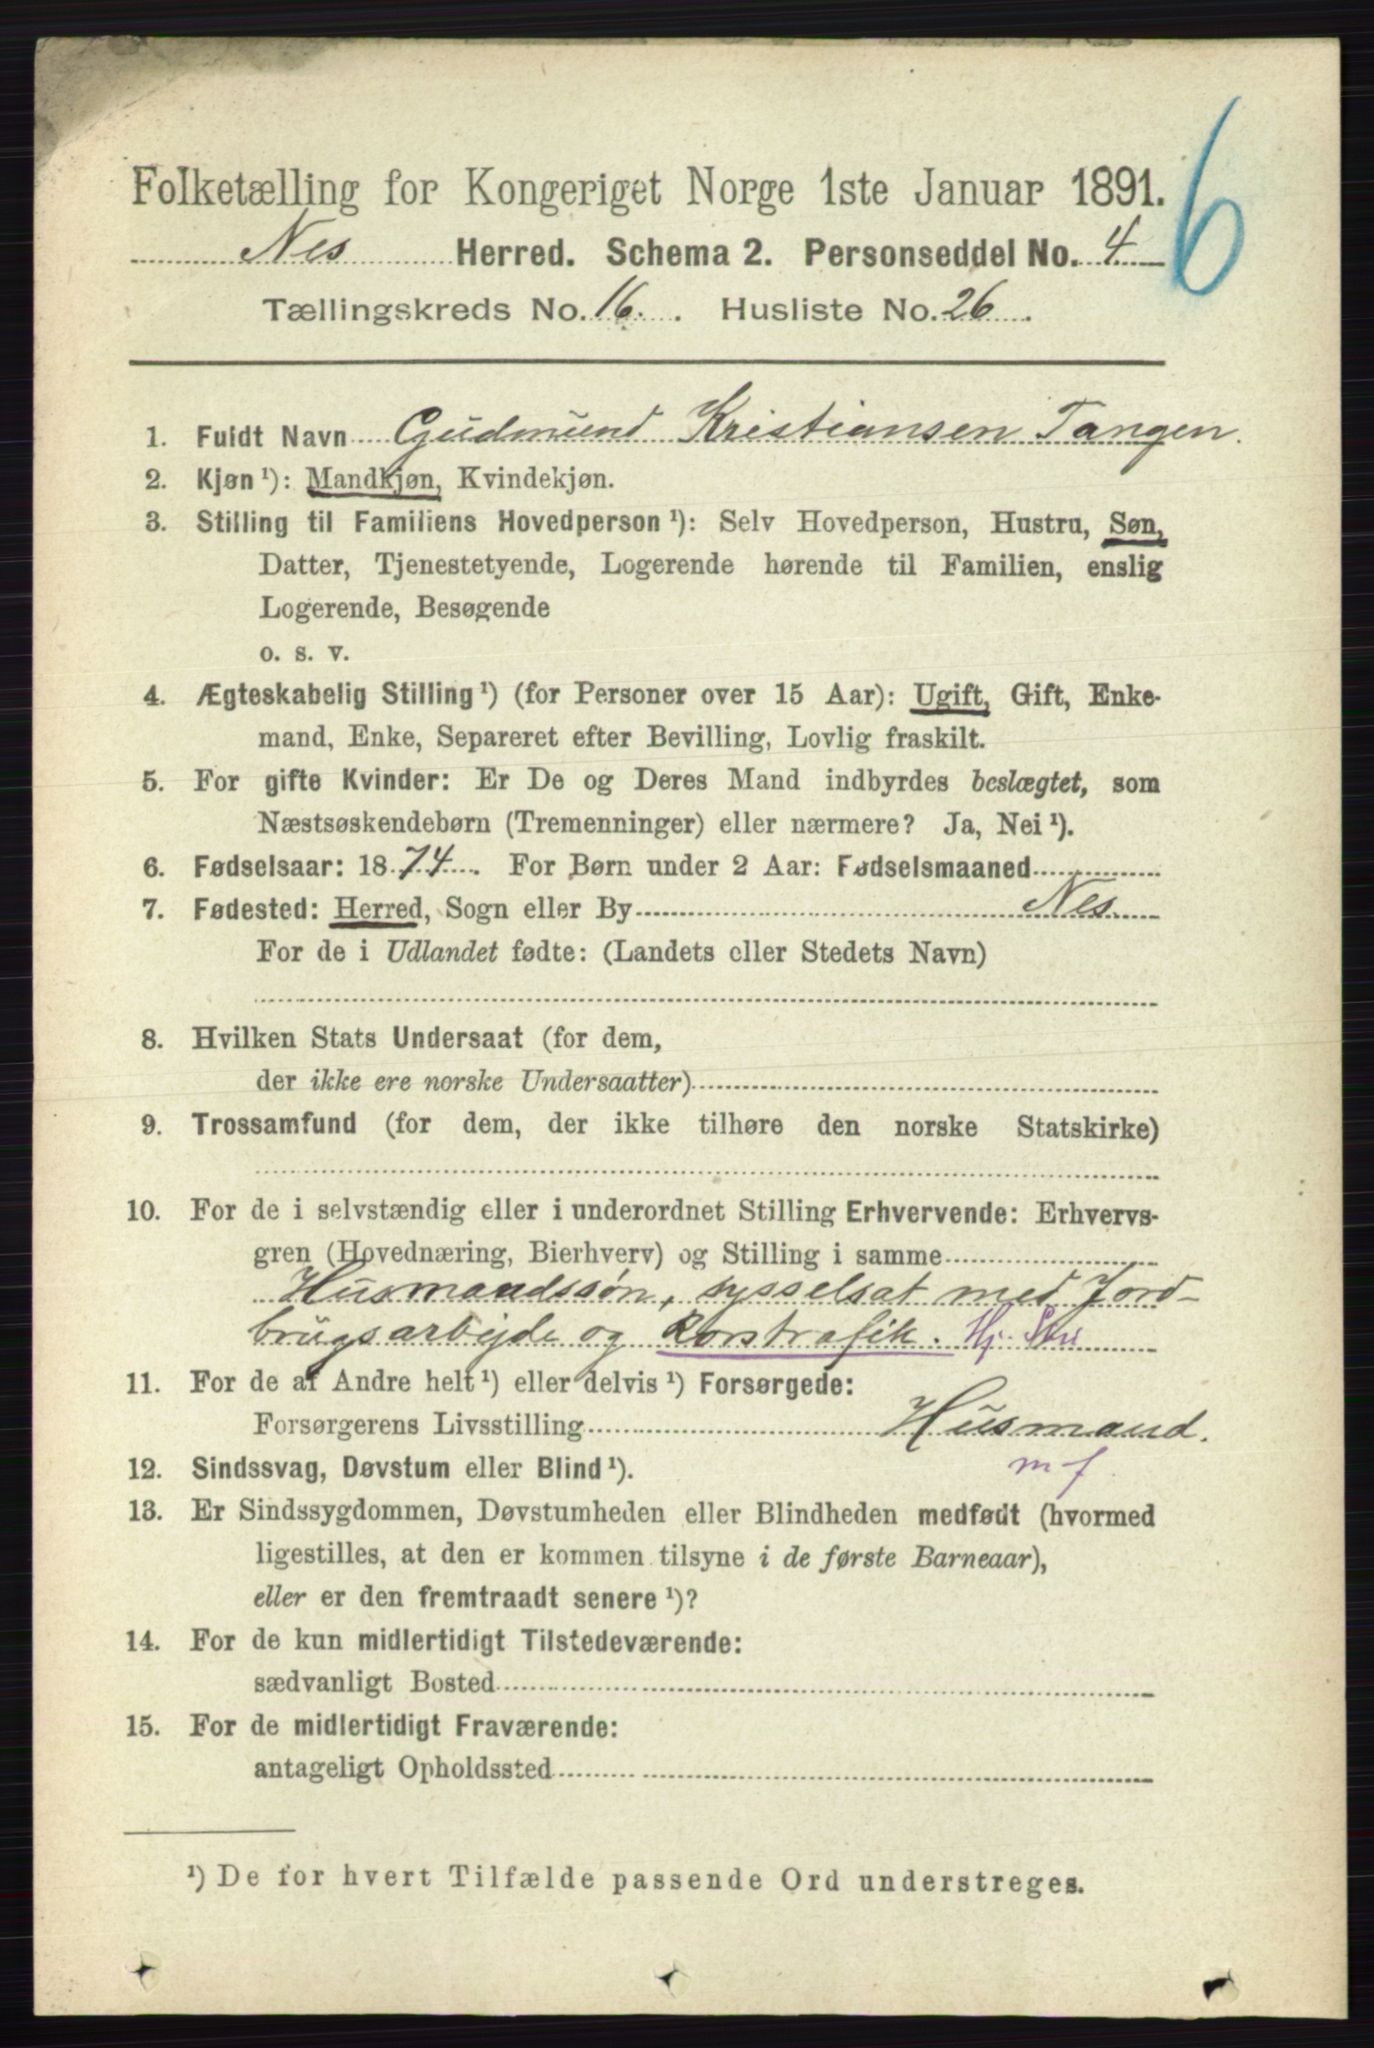 Folketælling for Kongeriget Norge 1ste Januar 1891.
6
Nes Herred. Schema 2. Personseddel No. 4
Tællingskreds No. 16. Husliste No. 26.
1. Fuldt Navn Gudmund Kristiansen Tangen.
2. Kjøn ¹): Mandkjøn, Kvindekjøn.
3. Stilling til Familiens Hovedperson ¹): Selv Hovedperson, Hustru, Søn,
Datter, Tjenestetyende, Logerende hørende til Familien, enslig
Logerende, Besøgende
o. s. v.
4. Ægteskabelig Stilling ¹) (for Personer over 15 Aar): Ugift, Gift, Enke-
mand, Enke, Separeret efter Bevilling, Lovlig fraskilt.
5. For gifte Kvinder: Er De og Deres Mand indbyrdes beslægtet, som
Næstsøskendebørn (Tremenninger) eller nærmere? Ja, Nei ¹).
6. Fødselsaar: 1874. For Børn under 2 Aar: Fødselsmaaned
7. Fødested: Herred, Sogn eller By Nes.
For de i Udlandet fødte: (Landets eller Stedets Navn)
8. Hvilken Stats Undersaat (for dem,
der ikke ere norske Undersaatter)
9. Trossamfund (for dem, der ikke tilhøre den norske Statskirke)
10. For de i selvstændig eller i underordnet Stilling Erhvervende: Erhvervs-
gren (Hovednæring, Bierhverv) og Stilling i samme
Husmandssøn, sysselsat med Jord-
brugsarbejde og Rorstrafik. Hj.
11. For de af Andre helt ¹) eller delvis ¹) Forsørgede:
Forsørgerens Livsstilling Husmand.
m f
12. Sindssvag, Døvstum eller Blind ¹).
13. Er Sindssygdommen, Døvstumheden eller Blindheden medfødt (hvormed
ligestilles, at den er kommen tilsyne i de første Barneaar),
eller er den fremtraadt senere ¹)?
14. For de kun midlertidigt Tilstedeværende:
sædvanligt Bosted
15. For de midlertidigt Fraværende:
antageligt Opholdssted
¹) De for hvert Tilfælde passende Ord understreges.